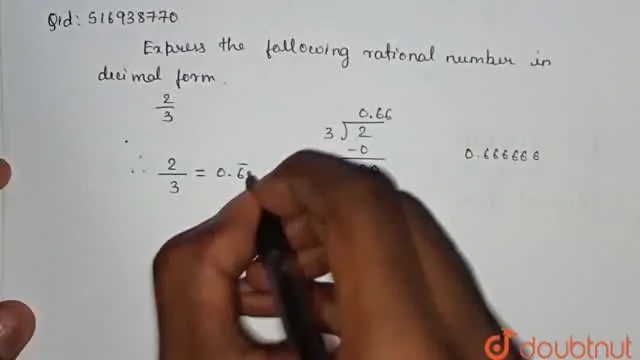 Qid: 516938770
Express the following rational number in
decimal form.
2
3
0.66
3 2
-0
∴ 2/3 = 0.6̅
0.666666
doubtnut